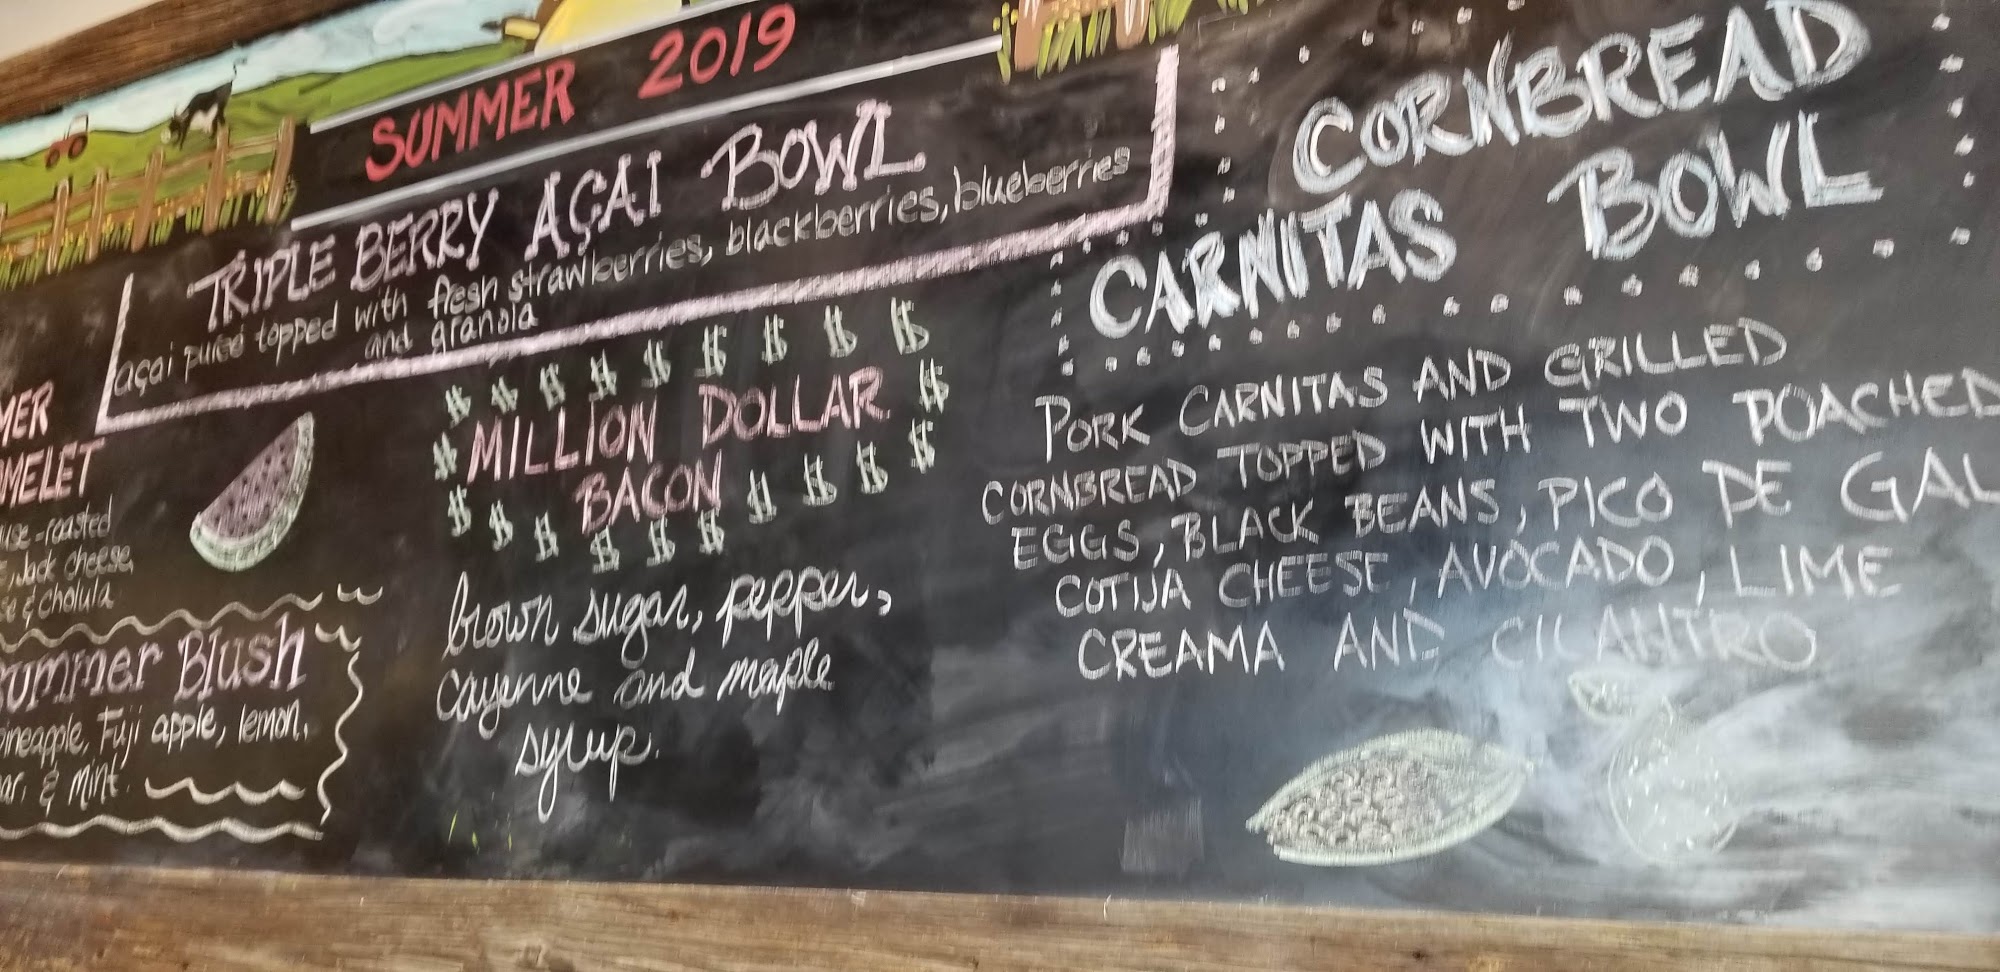 SUMMER 2019
TRIPLE BERRY AÇAI BOWL
açai pureé topped with fresh strawberries, blackberries, blueberries
and granola
MER
MELET
-roasted
Jack cheese,
& cholula
Summer Blush
pineapple, Fuji apple, lemon,
& mint.
$ $ $ $ $ $ $ $ $
$ MILLION DOLLAR $
BACON
$ $ $ $ $ $ $ $ $ $
brown sugar, pepper,
cayenne and maple
syrup.
CORNBREAD
CARNITAS BOWL
PORK CARNITAS AND GRILLED
CORNBREAD TOPPED WITH TWO POACHED
EGGS, BLACK BEANS, PICO DE GAL
COTIJA CHEESE, AVOCADO, LIME
CREAMA AND CILANTRO